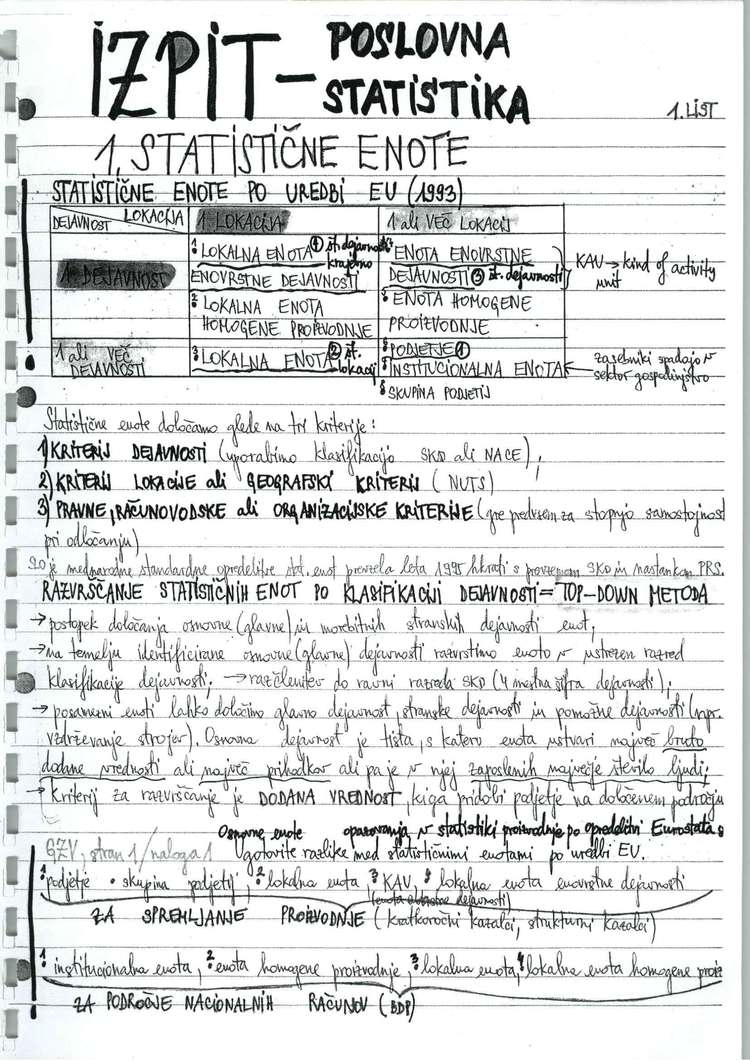 IZPIT - POSLOVNA
STATISTIKA
1. LIST
1. STATISTIČNE ENOTE
STATISTIČNE ENOTE PO UREDBI EU (1993)
DEJAVNOST LOKACIJA 1 LOKACIJA 1 ali VEČ LOKACIJ
1 DEJAVNOST
LOKALNA ENOTA ④ št. dejavnosti krajevno
ENOVRSTNE DEJAVNOSTI
2 LOKALNA ENOTA
HOMOGENE PROIZVODNJE
ENOTA ENOVRSTNE
DEJAVNOSTI ③ št. dejavnosti
ENOTA HOMOGENE
PROIZVODNJE
KAU → kind of activity
unit
1 ali VEČ
DEJAVNOSTI
3 LOKALNA ENOTA ② št. lokacij
PODJETJE ①
INSTITUCIONALNA ENOTA
SKUPINA PODJETIJ
zasebniki spadajo v
sektor gospodinjstvo
Statistične enote določamo glede na tri kriterije:
1) KRITERIJ DEJAVNOSTI (uporabimo klasifikacijo SKD ali NACE),
2) KRITERIJ LOKACIJE ali GEOGRAFSKI KRITERIJ (NUTS)
3) PRAVNE, RAČUNOVODSKE ali ORGANIZACIJSKE KRITERIJE (gre predvsem za stopnjo samostojnost
pri odločanju)
je mednarodne standardne opredelitve stat. enot prevzela leta 1995 hkrati s prevzemom SKD in nastankom PRS.
RAZVRŠČANJE STATISTIČNIH ENOT PO KLASIFIKACIJI DEJAVNOSTI = TOP-DOWN METODA
→ postopek določanja osnovne (glavne) in morebitnih stranskih dejavnosti enot,
→ na temelju identificirane osnovne (glavne) dejavnosti razvrstimo enoto v ustrezen razred
klasifikacije dejavnosti; → razčlenitev do ravni razreda SKD (4 mestna šifra dejavnosti),
→ posamezni enoti lahko določimo glavno dejavnost, stranske dejavnosti in pomožne dejavnosti (npr.
vzdrževanje strojev). Osnovna dejavnost je tista, s katero enota ustvari največ bruto
dodane vrednosti ali največ prihodkov ali pa je v njej zaposlenih največje število ljudi;
Kriterij za razvrščanje je DODANA VREDNOST, ki ga pridobi podjetje na določenem področju
Osnovne enote opazovanja v statistiki proizvodnje po opredelitvi Eurostata s
GZV, stran 1/naloga 1 Ugotovite razlike med statističnimi enotami po uredbi EU.
1 podjetje • skupina podjetij, 2 lokalna enota, 3 KAU, 4 lokalna enota enovrstne dejavnosti
ZA SPREMLJANJE PROIZVODNJE (kratkoročni kazalci, strukturni kazalci)
1 institucionalna enota, 2 enota homogene proizvodnje 3 lokalna enota, 4 lokalna enota homogene proiz
ZA PODROČJE NACIONALNIH RAČUNOV (BDP)